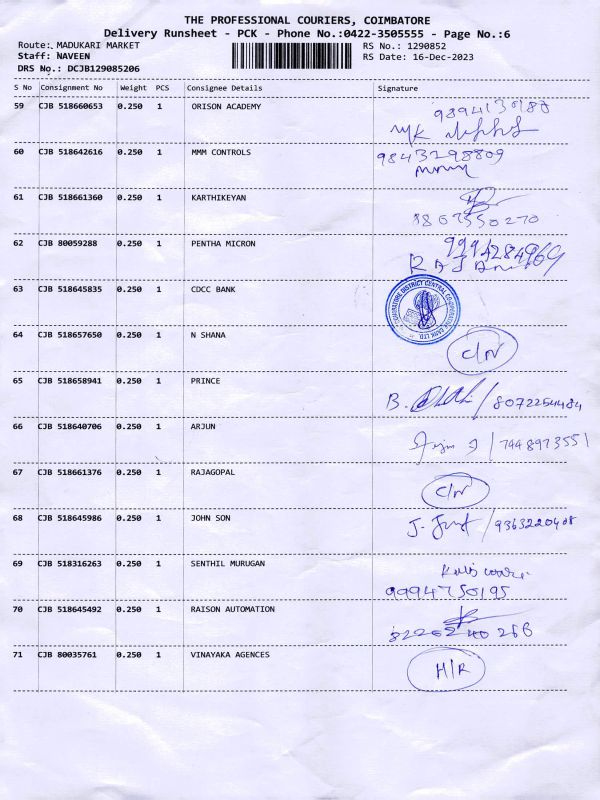 THE PROFESSIONAL COURIERS, COIMBATORE
Delivery Runsheet - PCK - Phone No.:0422-3505555 - Page No.:6
Route: MADUKARI MARKET
RS No.: 1290852
Staff: NAVEEN
RS Date: 16-Dec-2023
DRS No.: DCJB129085206
S No Consignment No Weight PCS Consignee Details Signature
59 CJB 518660653 0.250 1 ORISON ACADEMY
60 CJB 518642616 0.250 1 MMM CONTROLS 9843298809
61 CJB 518661360 0.250 1 KARTHIKEYAN
8867550270
62 CJB 80059288 0.250 1 PENTHA MICRON 9994284969
63 CJB 518645835 0.250 1 CDCC BANK
COIMBATORE DISTRICT CENTRAL CO-OPERATIVE BANK LTD.
64 CJB 518657650 0.250 1 N SHANA
C/N
65 CJB 518658941 0.250 1 PRINCE
B. / 8072254484
66 CJB 518640706 0.250 1 ARJUN
Arjun / 7448973551
67 CJB 518661376 0.250 1 RAJAGOPAL
C/N
68 CJB 518645986 0.250 1 JOHN SON
J. / 9363220408
69 CJB 518316263 0.250 1 SENTHIL MURUGAN
9994750195
70 CJB 518645492 0.250 1 RAISON AUTOMATION
71 CJB 80035761 0.250 1 VINAYAKA AGENCES
H/R